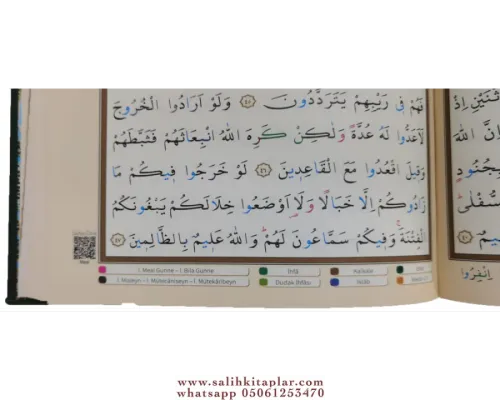 فَهُمْ فِى رَيْبِهِمْ يَتَرَدَّدُونَ ٤٥ وَلَوْ اَرَادُوا الْخُرُوجَ
لَاَعَدُّوا لَهُ عُدَّةً وَلٰكِنْ كَرِهَ اللّٰهُ انْبِعَاثَهُمْ فَثَبَّطَهُمْ
وَقٖيلَ اقْعُدُوا مَعَ الْقَاعِدٖينَ ٤٦ لَوْ خَرَجُوا فٖيكُمْ مَا
زَادُوكُمْ اِلَّا خَبَالًا وَلَا۬اَوْضَعُوا خِلَالَكُمْ يَبْغُونَكُمُ
الْفِتْنَةَۚ وَفٖيكُمْ سَمَّاعُونَ لَهُمْؕ وَاللّٰهُ عَلٖيمٌ بِالظَّالِمٖينَ ٤٧
İ. Meal Gunne – İ. Bilâ Gunne
İhfâ
Kalkale
İ. Misleyn – İ. Mütekâribeyn
Dudak İhfâsı
İklâb
ثَنَيْنِ اِذْ
اِنَّ اللّٰهَ
بِجُنُودٍ
سُّفْلٰى
اِنْفِرُوا
www.salihkitaplar.com
whatsapp 05061253470